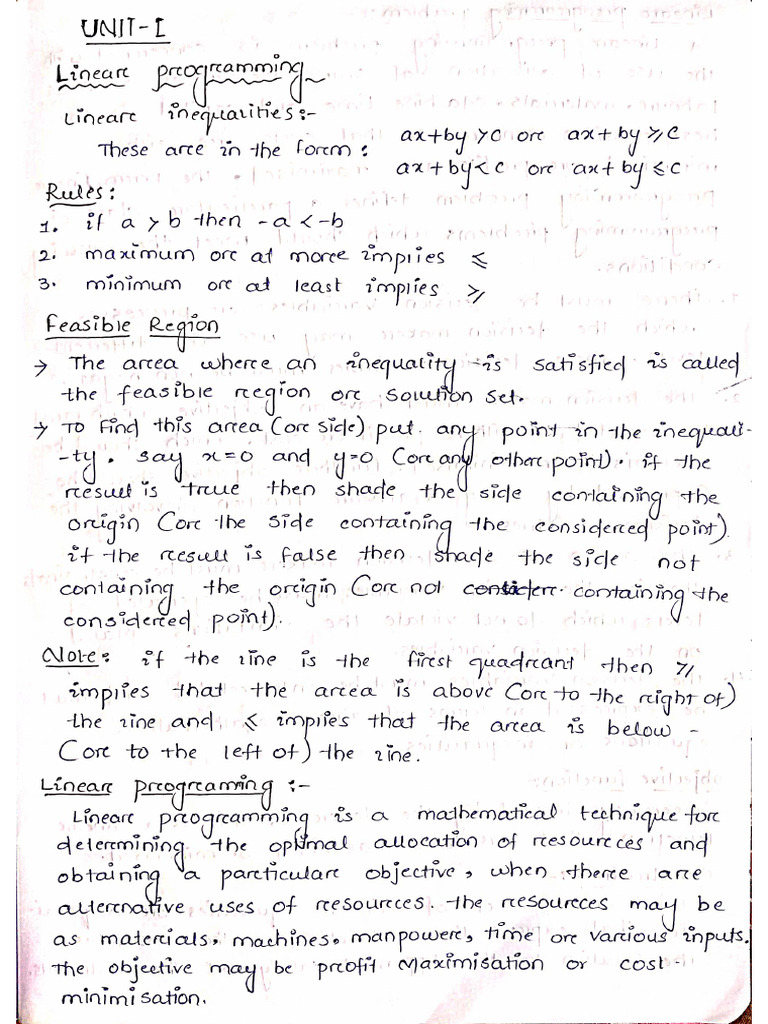 UNIT-I
Linear programming
Linear inequalities:-
These are in the form: ax+by>c or ax+by⩾c
ax+by<c or ax+by⩽c
Rules:
1. if a > b then -a < -b
2. maximum or at more implies ⩽
3. minimum or at least implies ⩾
Feasible Region
→ The area where an inequality is satisfied is called
the feasible region or solution set.
→ To find this area (or side) put any point in the inequali-
-ty. say x=0 and y=0 (or any other point). if the
result is true then shade the side containing the
origin (or the side containing the considered point).
if the result is false then shade the side not
containing the origin (or not containing the
considered point).
Note: if the line is the first quadrant then ⩾
implies that the area is above (or to the right of)
the line and ⩽ implies that the area is below -
(or to the left of) the line.
Linear programing :-
Linear programming is a mathematical technique for
determining the optimal allocation of resources and
obtaining a particular objective, when there are
alternative uses of resources. the resources may be
as materials, machines, manpower, time or various inputs.
The objective may be profit maximisation or cost -
minimisation.